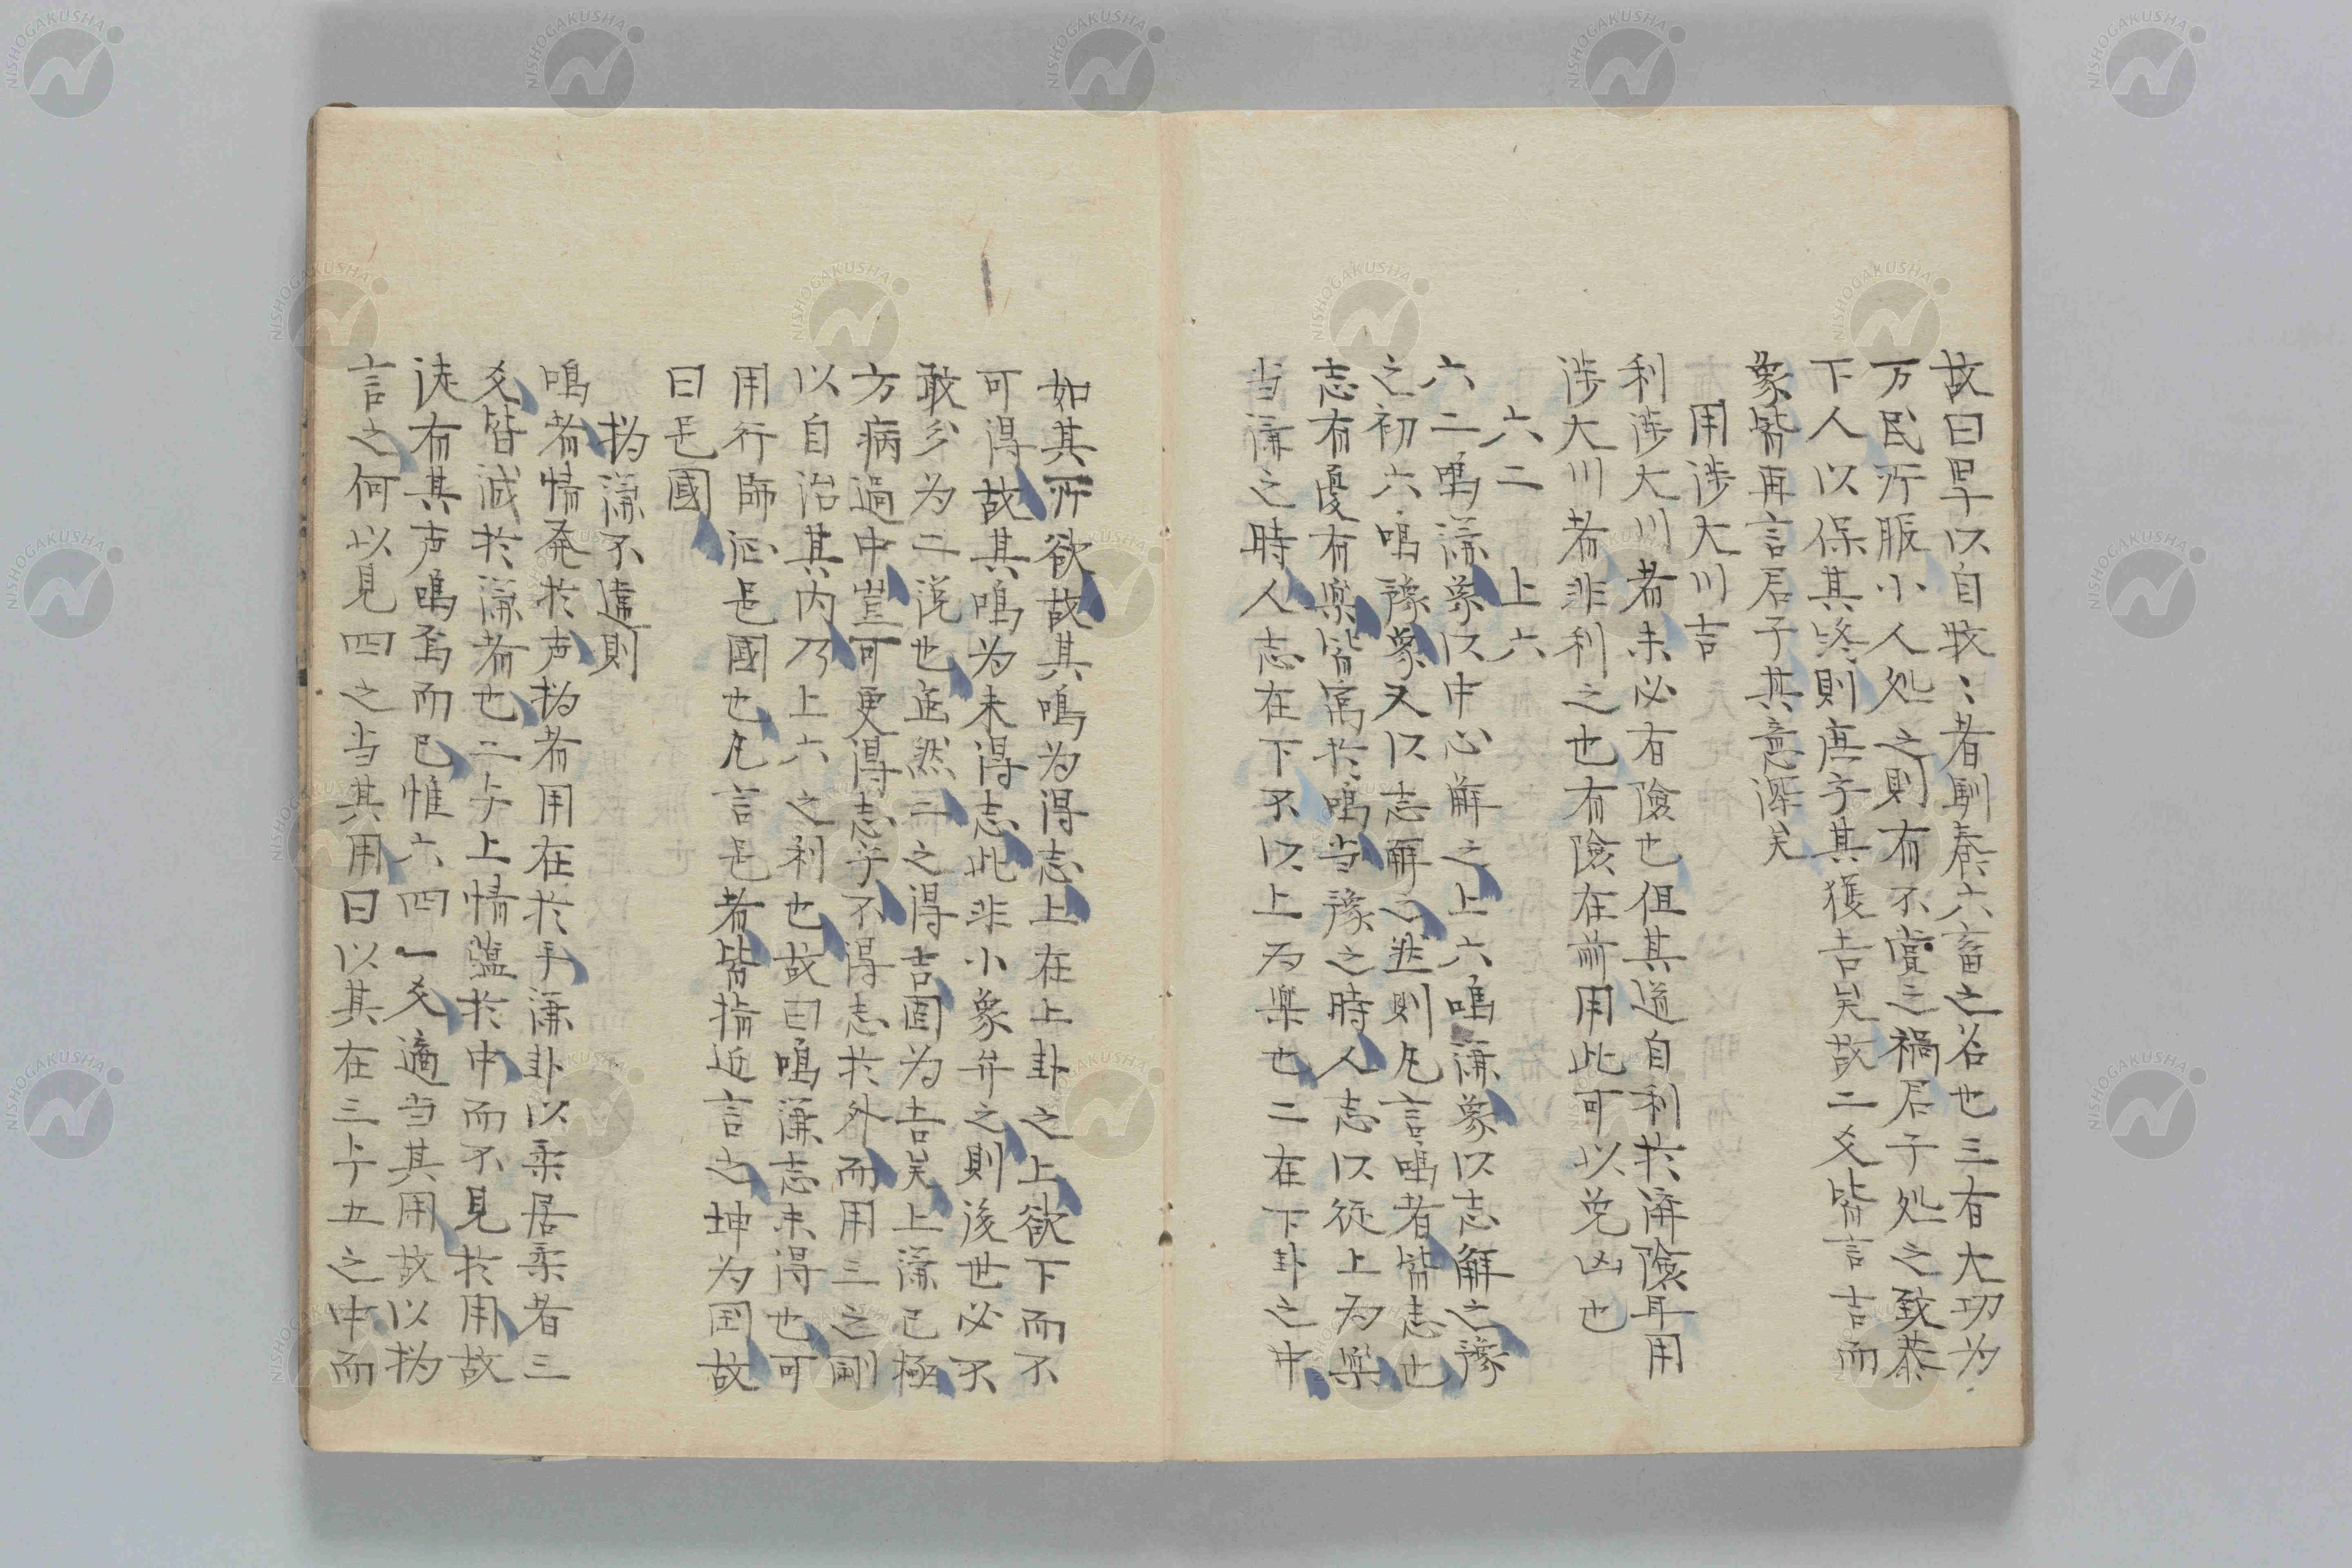 故曰卑以自牧〻者馴养六畜之名也三有大功为
万民所服小人処之則有不賞之禍君子処之致恭
下人以保其終則庶乎其獲吉矣故二爻皆言吉而
象皆再言君子其意深矣
用涉大川吉
利涉大川者未必有險也但其道自利於済險耳用
涉大川者非利之也有險在前用此可以免凶也
六二 上六
六二鳴谦象以中心解之上六鳴谦象以志解之豫
之初六鳴豫象又以志解之然則凡言鳴者皆志也
志有憂有楽皆寓於鳴当豫之時人志以従上为楽
当谦之時人志在下不以上为楽也二在下卦之中
如其所欲故其鳴为得志上在上卦之上欲下而不
可得故其鳴为未得志此非小象弁之則後世必不
敢分为二説也然三之得吉固为吉矣上谦已極
方病過中豈可更得志乎不得志於外而用三之剛
以自治其内乃上六之利也故曰鳴谦志未得也可
用行師征邑國也凡言邑者皆指近言之坤为国故
曰邑國
撝谦不違則
鳴者情発於声撝者用在於手谦卦以柔居柔者三
爻皆減於谦者也二与上情蘊於中而不見於用故
徒有其声鳴焉而已惟六四一爻適当其用故以撝
言之何以見四之当其用曰以其在三与五之中而